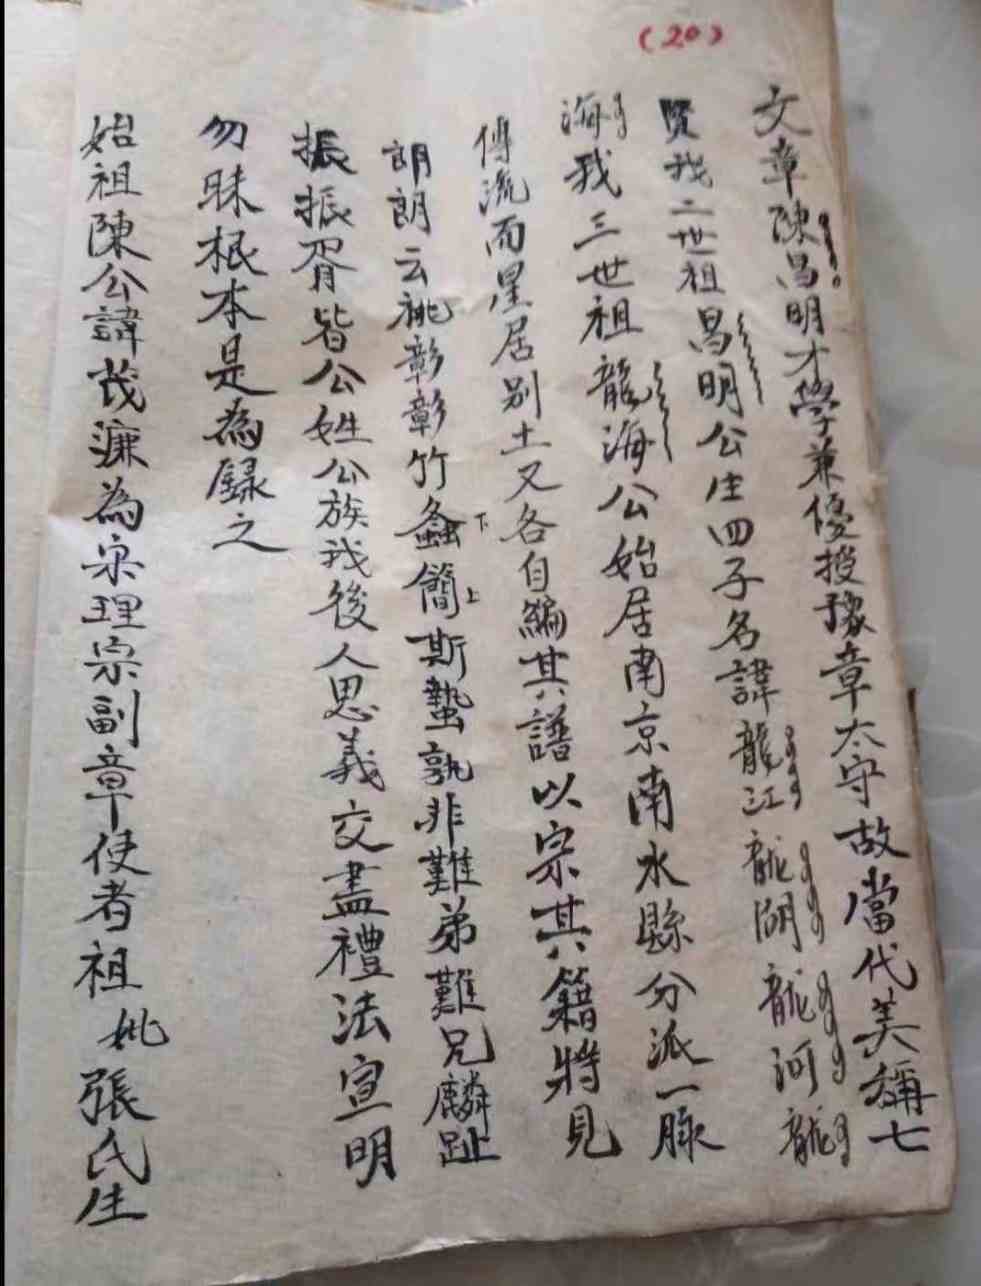 (20)
文章陳昌明才學兼優授豫章太守故當代美稱七
賢我二世祖昌明公生四子名諱龍江龍湖龍河龍
海我三世祖龍海公始居南京南水縣分派一脉
傳流而星居别土又各自編其譜以宗其籍將見
朗朗云祧彰彰竹螽下簡上斯蟄孰非難弟難兄麟趾
振振胥皆公姓公族我後人思義交盡禮法宣明
勿昧根本是為録之
始祖陳公諱茂濂為宋理宗副章使者祖妣張氏生